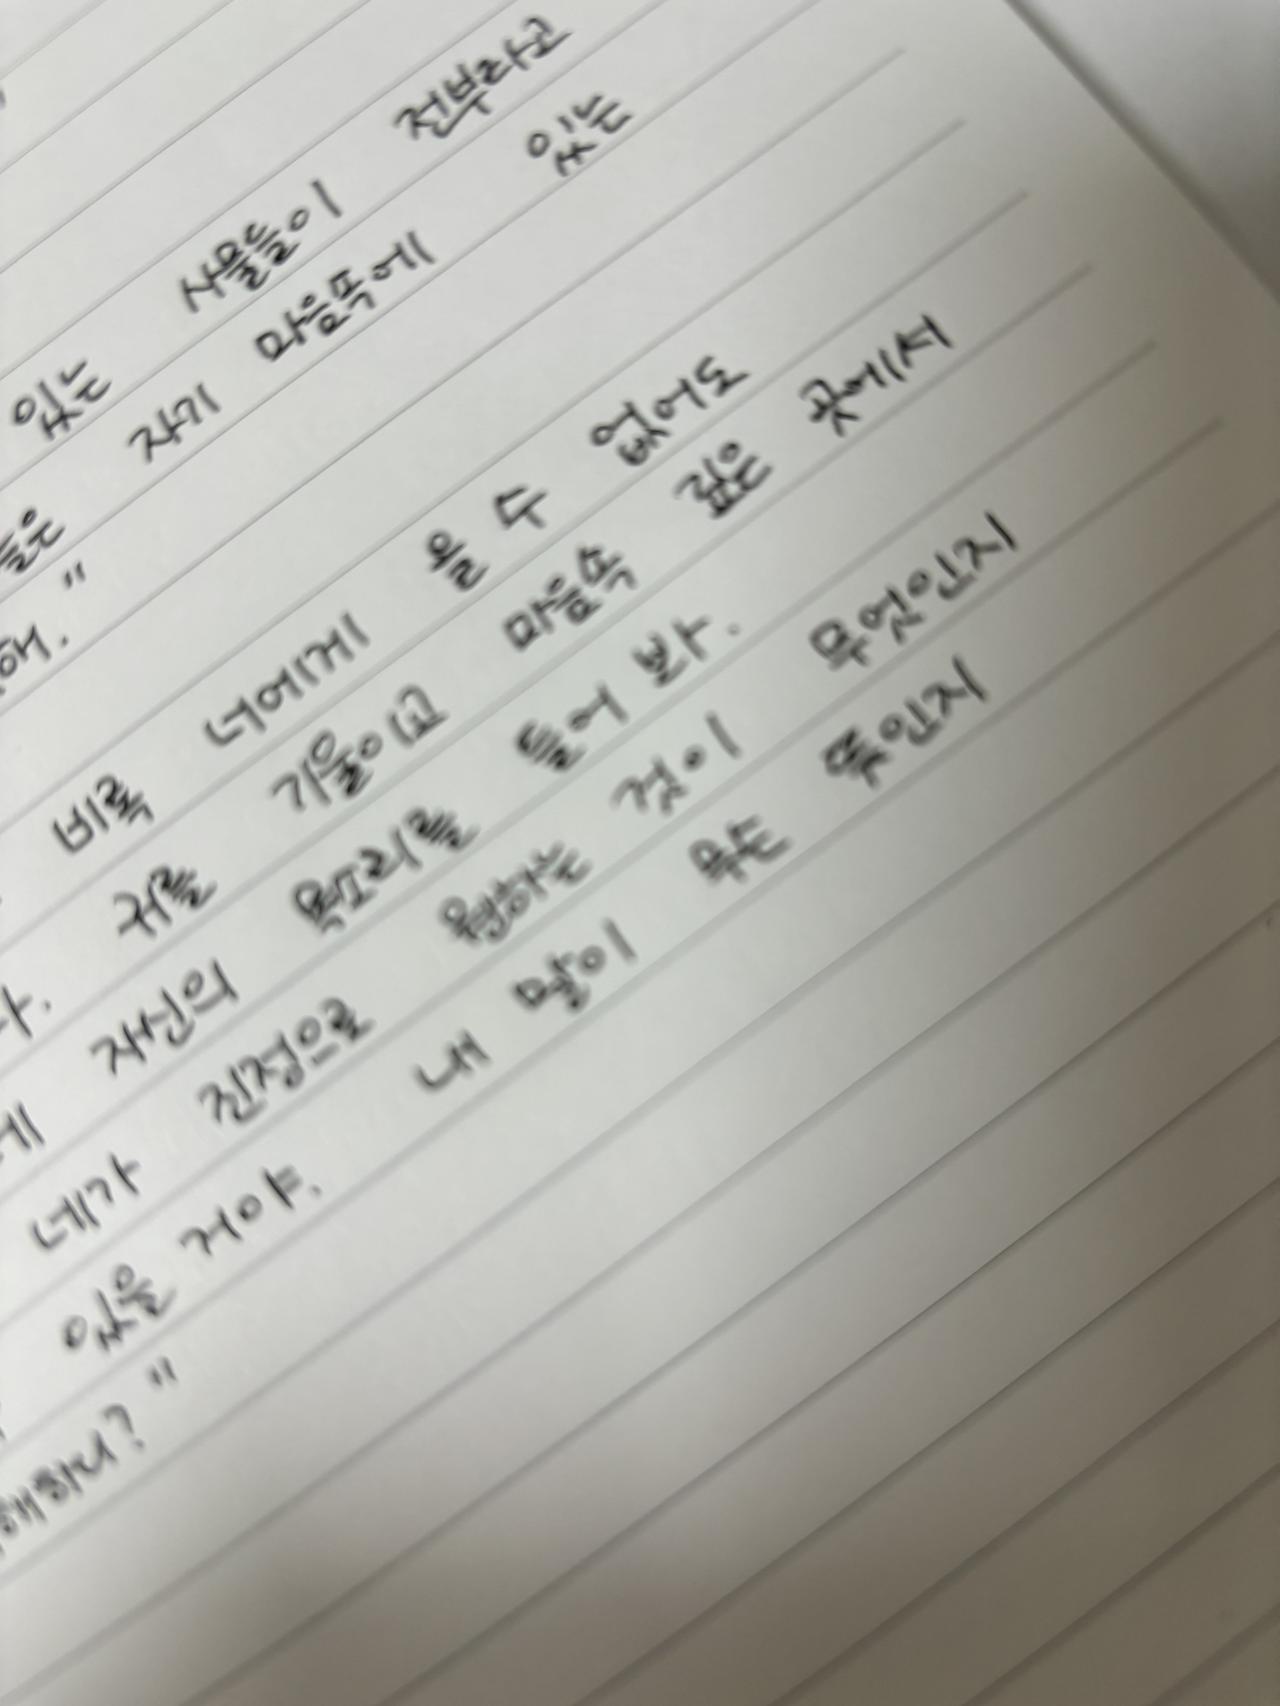 있는 사물들이 전부라고
들은 자기 마음속에 있는
해."
비록 너에게 올 수 없어도
귀를 기울이고 마음속 깊은 곳에서
자신의 목소리를 들어 봐.
네가 진정으로 원하는 것이 무엇인지
있을 거야. 내 말이 무슨 뜻인지
해하니?"